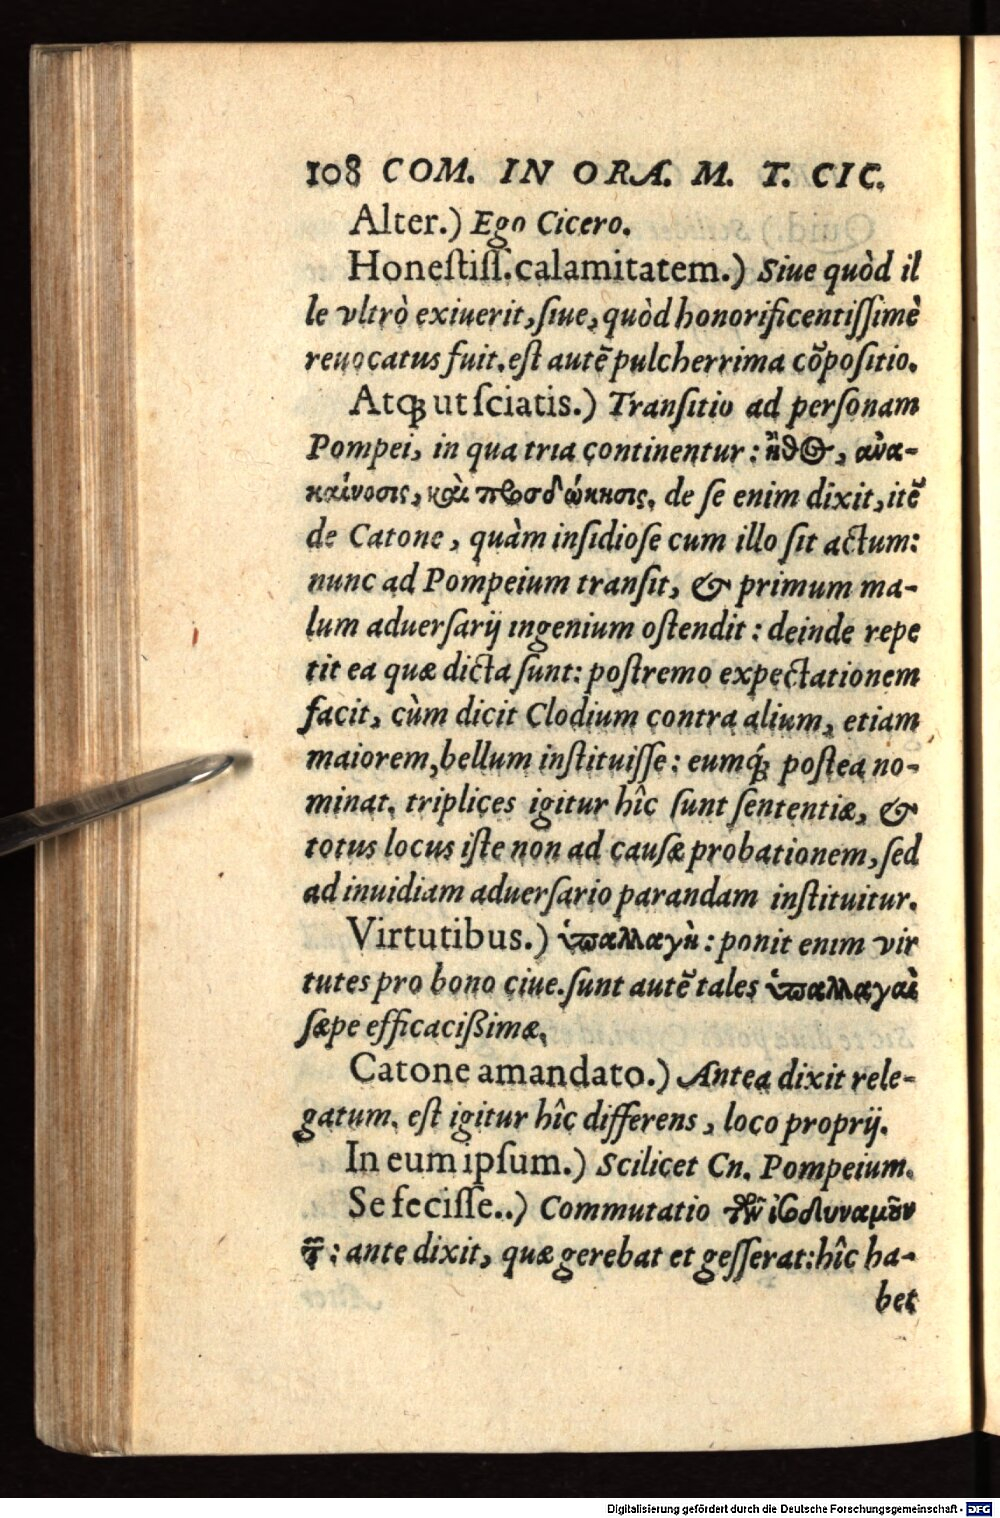 108 COM. IN ORA. M. T. CIC.
Alter.) Ego Cicero.
Honestiss. calamitatem.) Siue quòd il
le vltrò exiuerit, siue, quòd honorificentissimè
reuocatus fuit. est autē pulcherrima cōpositio.
Atq; ut sciatis.) Transitio ad personam
Pompei, in qua tria continentur: ἦθος, ἀνα-
καίνοσις, καὶ προσδώκησις. de se enim dixit, itē
de Catone, quàm insidiose cum illo sit actum:
nunc ad Pompeium transit, & primum ma-
lum aduersarij ingenium ostendit: deinde repe
tit ea quæ dicta sunt: postremo expectationem
facit, cùm dicit Clodium contra alium, etiam
maiorem, bellum instituisse: eumq́; postea no-
minat. triplices igitur hîc sunt sententiæ, &
totus locus iste non ad causæ probationem, sed
ad inuidiam aduersario parandam instituitur.
Virtutibus.) ὑπαλλαγὴ: ponit enim vir
tutes pro bono ciue. sunt autē tales ὑπαλλαγαὶ
sæpe efficacißimæ.
Catone amandato.) Antea dixit rele-
gatum. est igitur hîc differens, loco proprij.
In eum ipsum.) Scilicet Cn. Pompeium.
Se fecisse..) Commutatio τῶν ἰσοδυναμούν
των: ante dixit, quæ gerebat et gesserat: hîc ha-
bet
Digitalisierung gefördert durch die Deutsche Forschungsgemeinschaft - DFG